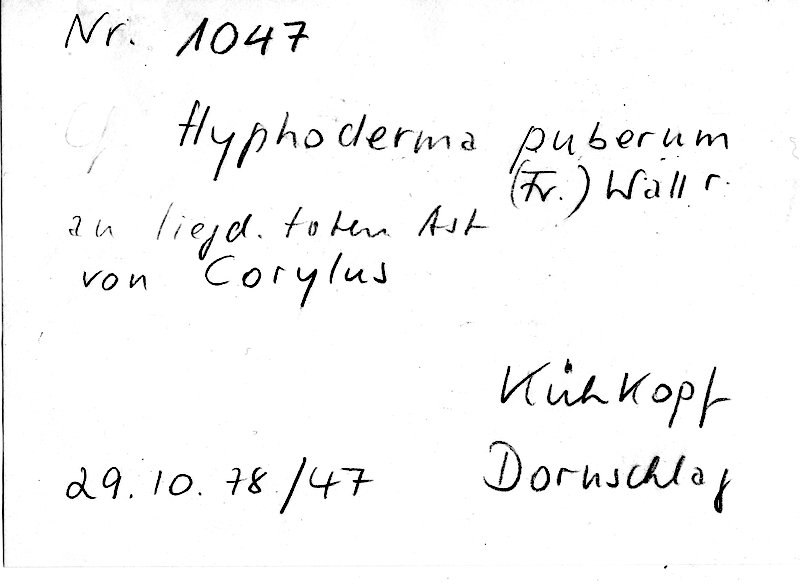 Nr. 1047
Hyphoderma puberum
(Fr.) Wallr.
an liegd. toten Ast
von Corylus
Kühkopf
29.10.78/47 Dornschlag